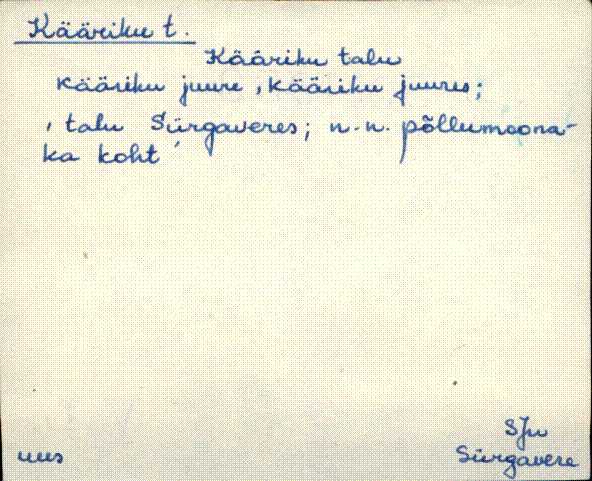 Kääriku t.
Kääriku talu
kääriku juure, kääriku juures;
, talu Sürgaveres; n.n. põllumoona-
ka koht ,
uus
SJn
Sürgavere